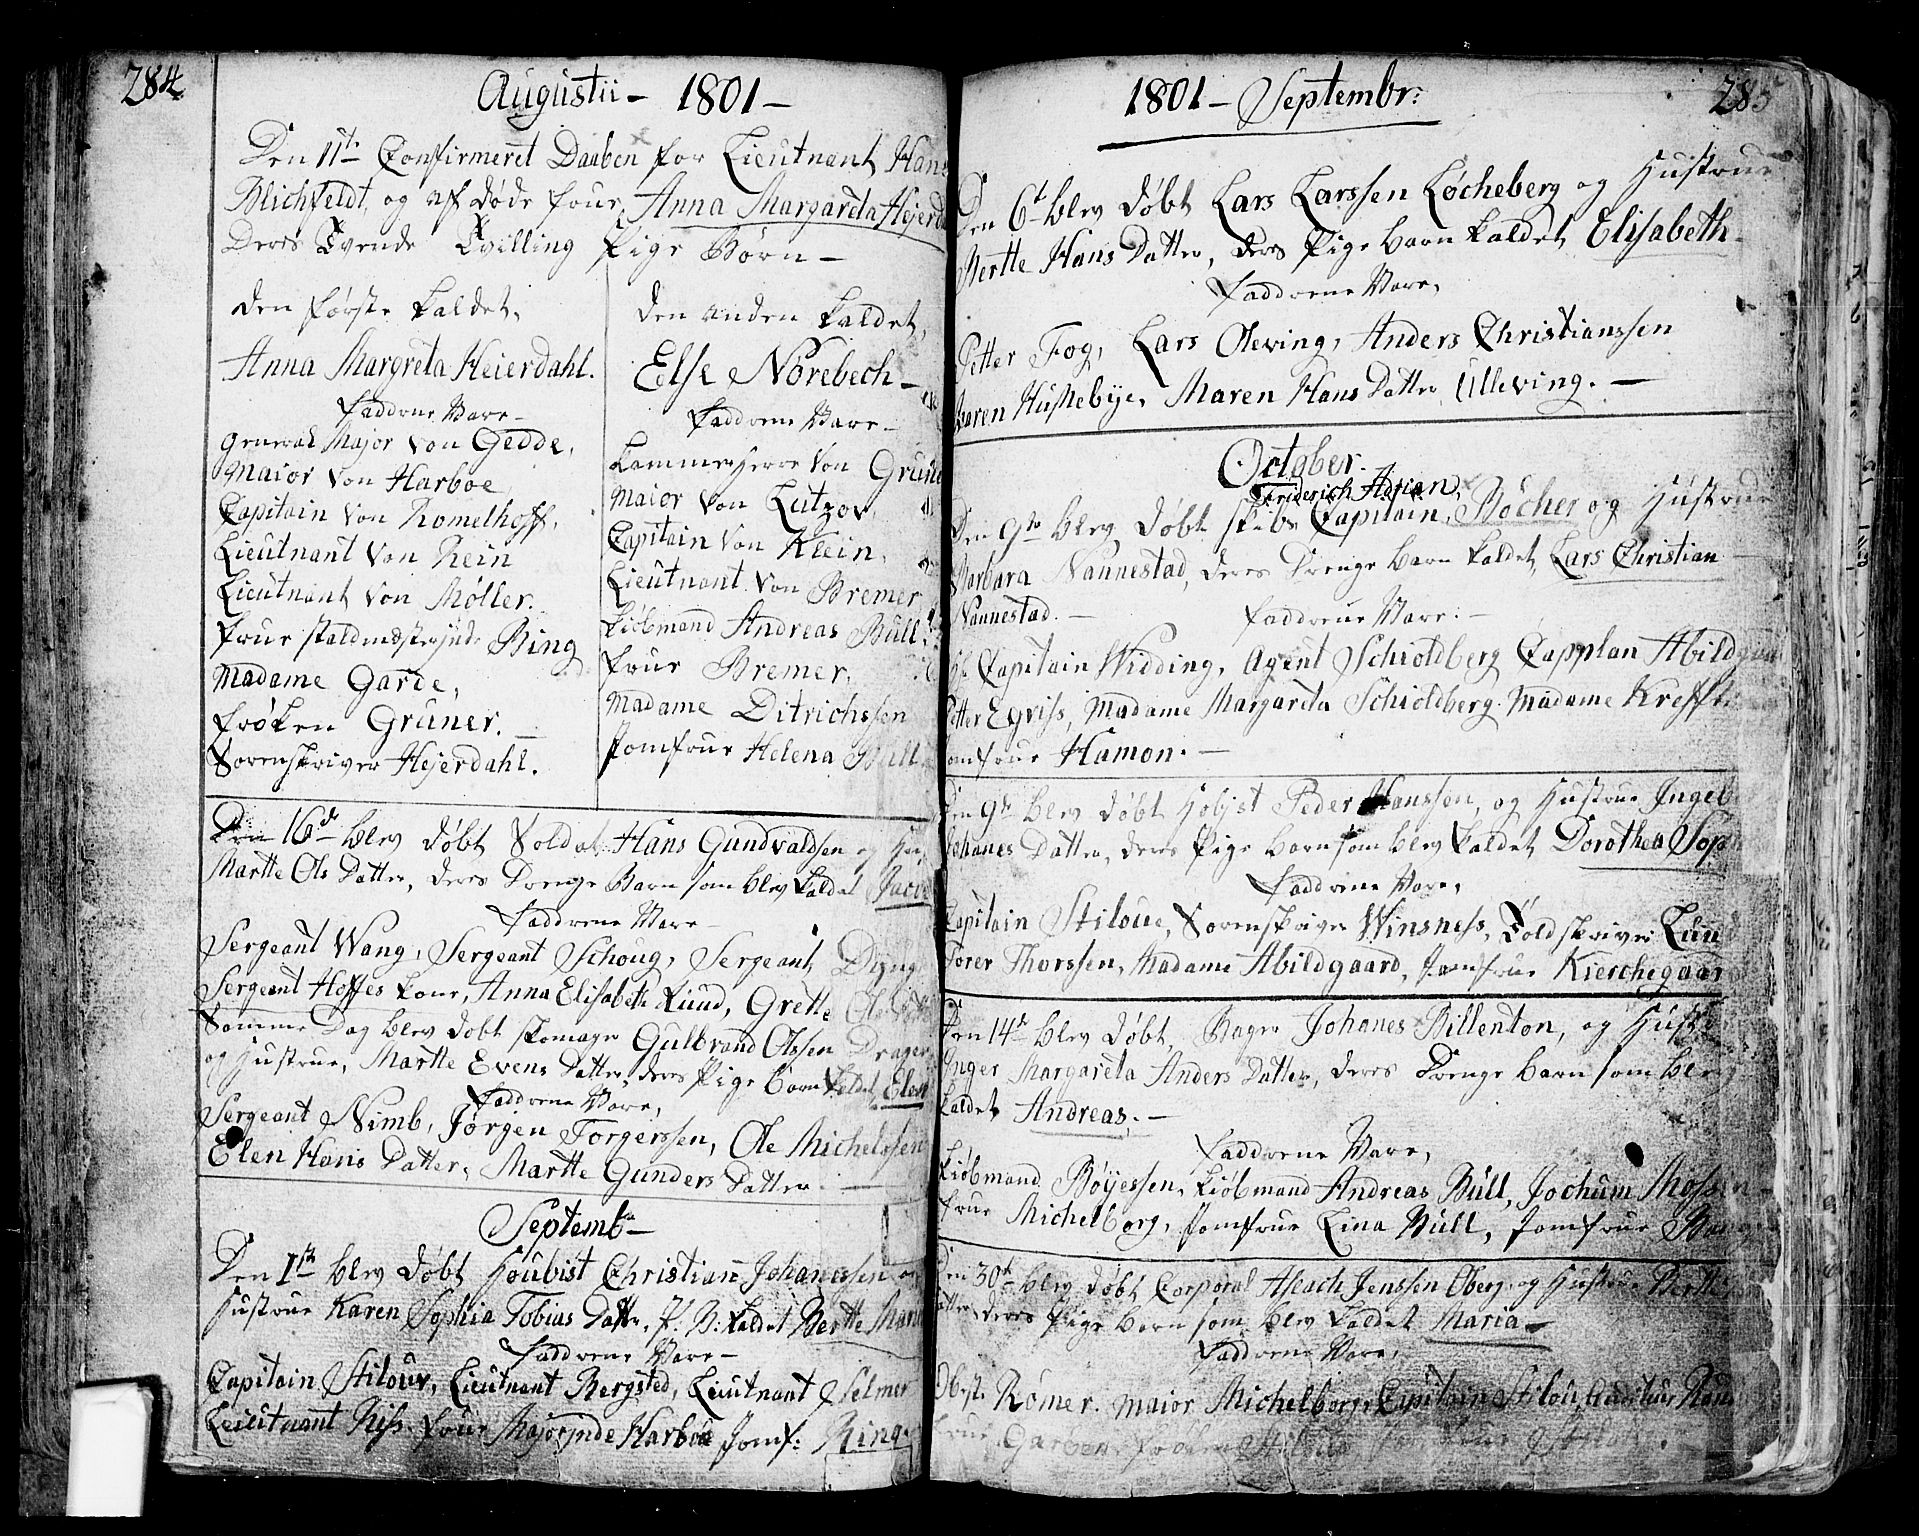 284
Augustii - 1801 -
Den 11te Confirmeret Daaben for Lieutnant Hans
Blichfeldt, og af døde frue Anna Margareta Hejerda
Deres Tvende Tvilling Pige Børn -
den første kaldet,
Anna Margreta Heierdahl.
Faddrene Vare -
General Major von Gedde,
Maior von Harboe
Capitain von Romelhoff,
Lieutnant von Rein
Lieutnant von Møller.
frue Staldmesterinde Bing
Madame Garde,
frøken Grüner. -
Sorenskriver Hejerdahl.
den anden kaldet,
Else Nørebech -
Faddrene Vare -
Kammerherre von Grüne
Maior von Lützov,
Capitain von Klein,
Lieutnant von Bremer
Kiøbmand Andreas Bull.
frue Bremer,
Madame Ditrichssen
Jomfrue Helena Bull
Den 16de blev døbt Soldat Hans Gundvaldsen og Hu
Martte Ols Datter, deres Drenge Barn som blev kaldet Jacob
Faddrene Vare -
Sergeant Wang, Sergeant Schoug, Sergeant
Sergeant Hoffes kone, Anna Elisabeth Ruud, Grette
Samme Dag blev døbt skomager Gulbrand Olssen Drager
og Hustrue, Martte Evens Datter, deres Pige barn kaldet Elen
Faddrene Vare,
Sergeant Nimb, Jørgen Torgerssen, Ole Michelssen
Elen Hans Datter, Martte Gunders Datter. -
Septembr -
Den 1ste blev døbt Houbist Christian Johanessen og
Hustrue Karen Sophia Tobias Datter, P. B: kaldet Bertte Mari
Faddrene Vare -
Capitain Stilour, Lieutnant Bergsted, Lieutnant Selmer
Leieutnant Riis. frue Majorinde Harboe Jomf: Ring
1801 - Septembr:
285
Den 6te blev døbt Lars Larssen Løcheberg og Hustrue
Bertte Hans Datter, deres Pige barn kaldet Elisabeth -
Faddrene Vare,
Petter Fog, Lars Oleving, Anders Christianssen
Karen Hussebye, Maren Hans Datter Ulleving. -
October.
Friderich Adrian
Den 9de blev døbt skibs Capitain, Bøcher og Hustrue
Barbara Nannestad, deres Drenge barn kaldet Lars Christian
Nannestad. - Faddrene Vare. -
Capitain Widding, Agent Schioldberg Capplan Abildgaa
Petter Egriss, Madame Margareta Schioldberg. Madame Krefft
Jomfrue Hamon. -
Den 9de blev døbt Peder Hanssen, og Hustrue Ingeb
Johanes Datter, deres Pige barn som blev kaldet Dorothea Sop
Faddrene Vare,
Capitain Stiloue, Sorenskriver Winsness, Toldskriver Lun
Torer Thorssen, Madame Abildgaard, Jomfrue Kierchegaar
Den 14de blev døbt, Bager Johanes Billenton, og Hust
Inger Margareta Anders Datter, deres Drenge barn som blev
kaldet Andreas. -
Faddrene Vare,
Kiøbmand Bøyessen, Kiøbmand Andreas Bull, Jochum Mossin
frue Michelborg, Jomfrue Lina Bull, Jomfrue
Den 30te blev døbt Corporal Aslach Jenssen Oberg, og Hustrue Bertte
Datter, deres Pige barn som blev kaldet Maria -
Faddrene Vare,
Obrst: Rømer. Maior Michelborg, Capitain Stilou,
frue Garben,